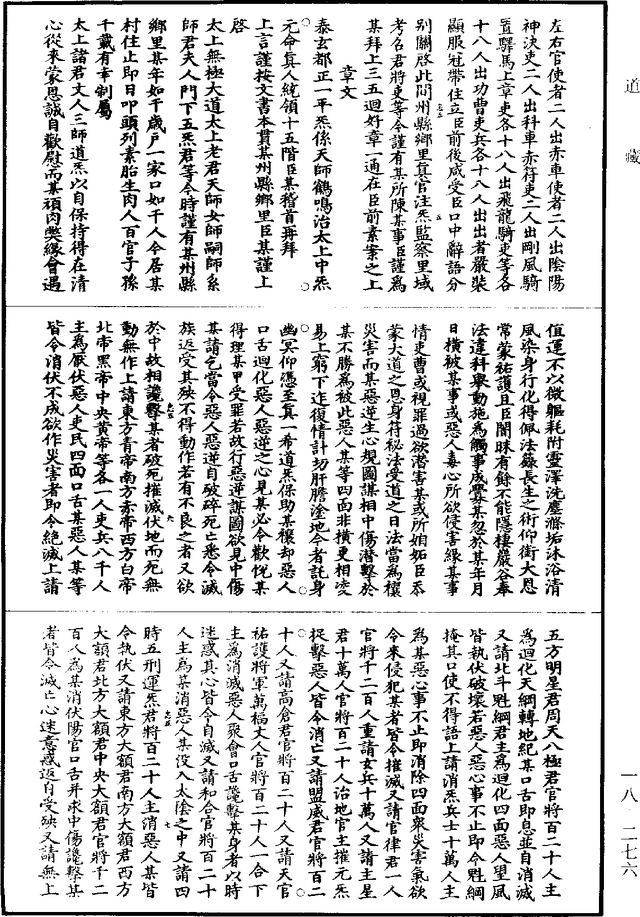 左右官使者二人出赤車使者二人出陰陽
神決吏二人出科車赤符吏二人出剛風騎
置驛馬上章吏各十八人出飛龍騎吏等各
十八人出功曹吏兵各十八人出出者嚴裝
顯服冠帶住立臣前後咸受臣口中辭語分
別關啓此間州縣鄉里真官注炁監察里域
考召君將吏等今謹有某所陳某事臣謹為
某拜上三五迴好章一通在臣前素案之上
章文
泰玄都正一平炁係天師鶴鳴治太上中炁
元命真人統領十五階臣某稽首再拜
上言謹按文書本貫某州縣鄉里臣某謹上
啓
太上無極大道太上老君天師女師嗣師系
師君夫人門下五炁君等今時謹有某州縣
鄉里某年如千歲戶一家口如千人今居某
村住止即日叩頭列素胎生肉人百官子孫
千載有幸制屬
太上諸君丈人三師道炁以自保持得在清
心從來蒙恩誠自歡慰而某頑肉弊緣會遇
值運不以微軀耗附靈澤洗塵滌垢沐浴清
風染身行化得佩法籙長生之術仰銜大恩
常蒙祐護且臣闇昧有餘不能隱棲嚴谷奉
法違科舉動施為觸事成舋某忽於某年月
日橫被某事或惡人毒心所欲侵害緣某事
情吏曹或視罪過欲潛害某或所姐妬臣忝
蒙大道之恩身符祕法受道之日法當為禳
災害而某惡逆生心規圖謀相中傷潛擊於
某不勝為被此惡人某等四面非橫更相淩
易上窮下迮復情計切肝膽塗地今者託身
幽冥仰憑至真一希道炁保助某禳却惡人
口舌迴化惡人惡逆之心見某必令歡悅某
得理某甲受罪若故行惡逆謀圖欲見中傷
某請乞當令惡人惡逆自破碎死亡悉令滅
族返受其殃不得動作若有不良之者又欲
於中故相讒擊某者破死摧滅伏地而死無
動無作上請東方青帝南方赤帝西方白帝
北帝黑帝中央黃帝等各一人吏兵八千人
主為厭伏惡人吏民四面口舌某惡人某等
皆令消伏不成欲作災害者即令絕滅上請
五方明星君周天八極君官將百二十人主
為迴化天綱轉地紀某口舌即息並自消滅
又請北斗魁綱君主為迴化四面惡人望風
皆執伏破壞若惡人惡心事不止即令魁綱
掩其口使不得語上請消炁兵士十萬人主
為某惡心事不止即消除四面衆災害氣欲
令來侵犯某者皆令摧滅又請官律君一人
官將千二百人重請女兵十萬人又請主星
君十萬人官將百二十人治地官主摧元炁
捉擊惡人皆令消亡又請盟威君官將百二
十人又請高倉君官將百二十人又請天官
祐護將軍萬福丈人官將百二十人一合下
主為消滅惡人聚會口舌讒擊某身者以時
迷惑其心皆令自滅又請和合官將百二十
人主為某消惡人某沒入太陰之中又請四
時五刑運炁君將百二十人主消惡人某皆
令執伏又請東方大額君南方大額君西方
大額君北方大額君中央大額君官將千二
百人為某消伏陽官口舌并求中傷讒擊某
者皆令滅亡心迷意惑返自受殃又請無上
道藏
一八·二七六